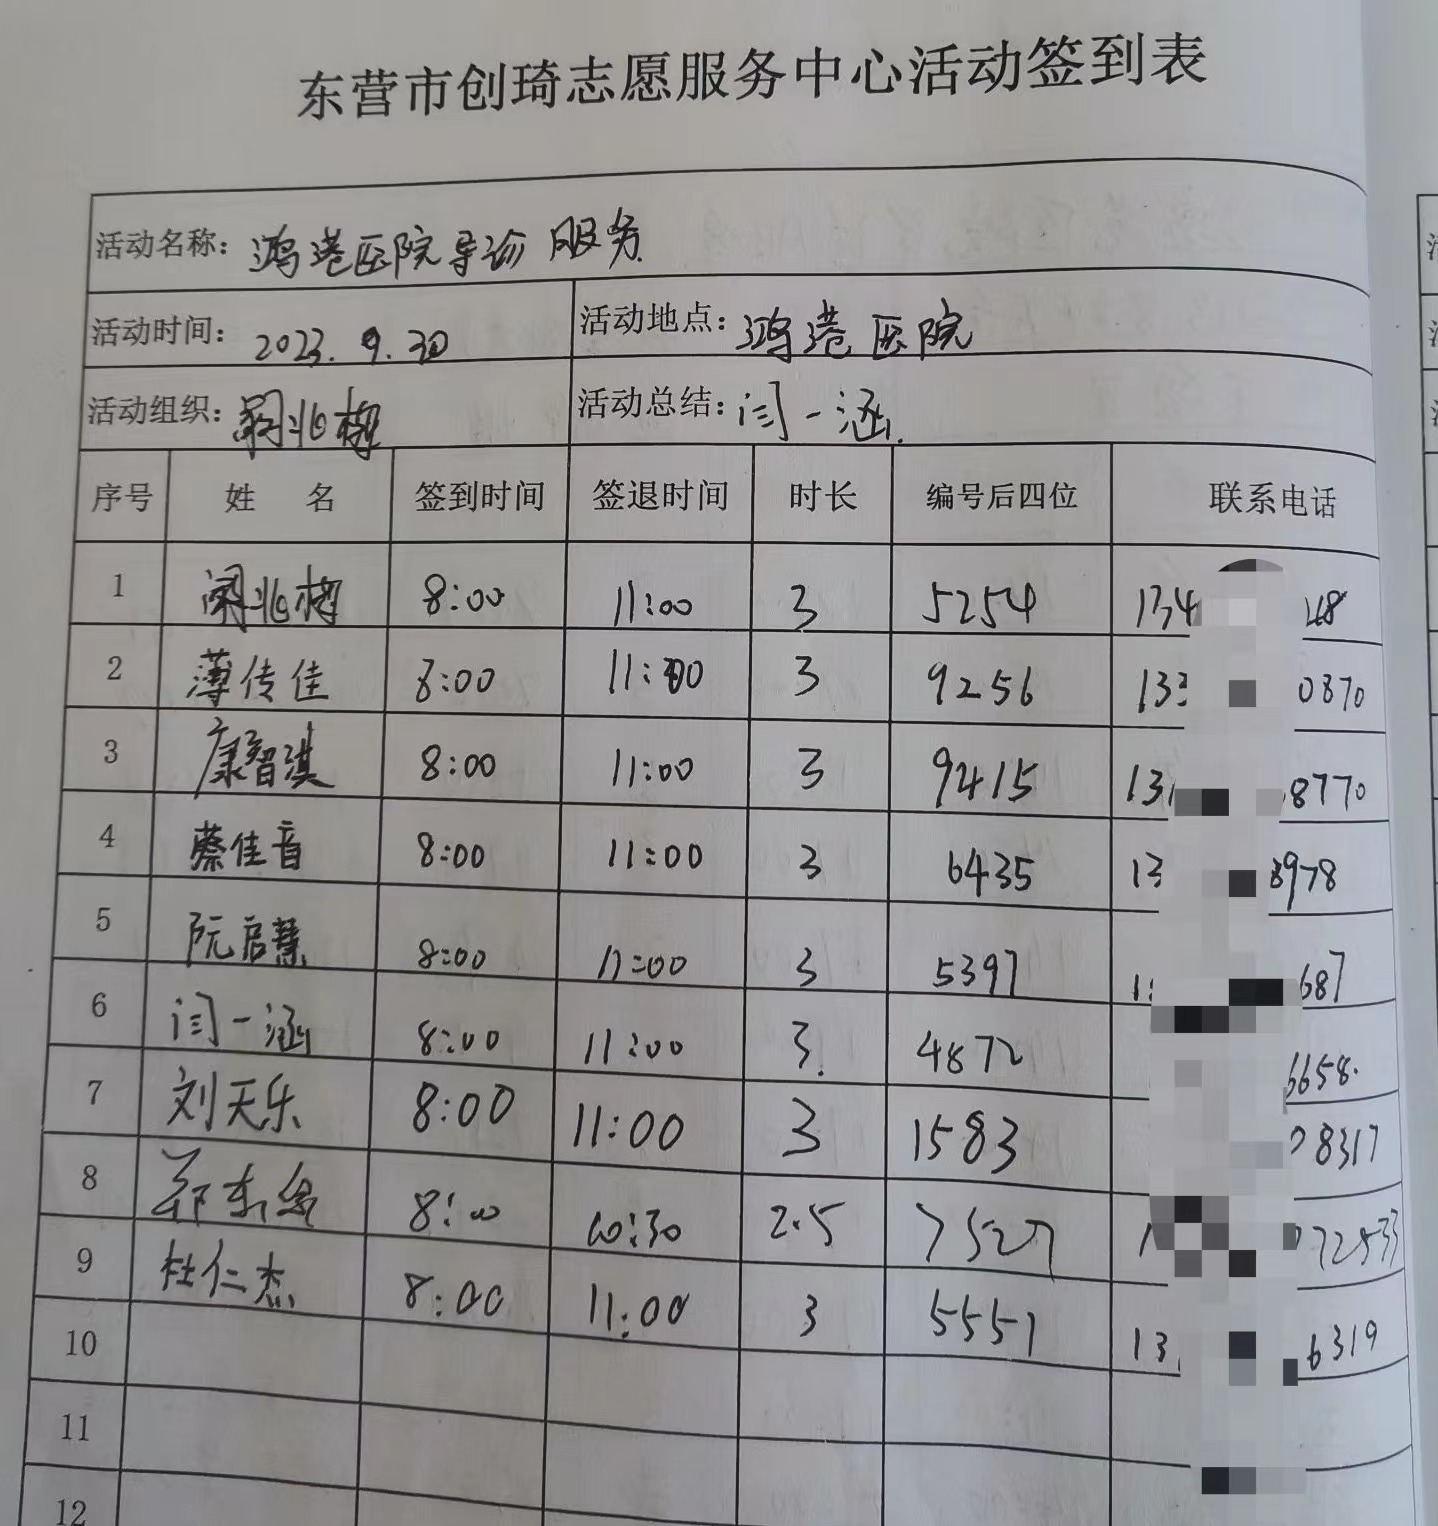 东营市创琦志愿服务中心活动签到表
活动名称: 鸿港医院导诊服务
活动时间: 2023.9.30 活动地点: 鸿港医院
活动组织: 活动总结: 闫一涵
序号 姓 名 签到时间 签退时间 时长 编号后四位 联系电话
1 8:00 11:00 3 5254 134
2 薄传佳 8:00 11:00 3 9256 133 0870
3 康智淇 8:00 11:00 3 9415 13 8770
4 蔡佳音 8:00 11:00 3 6435 13 8978
5 阮启慧 8:00 11:00 3 5397 687
6 闫一涵 8:00 11:00 3. 4872 6658.
7 刘天乐 8:00 11:00 3 1583 08317
8 8:00 10:30 2.5 7527 72533
9 杜仁杰 8:00 11:00 3 5551 13 6319
10
11
12